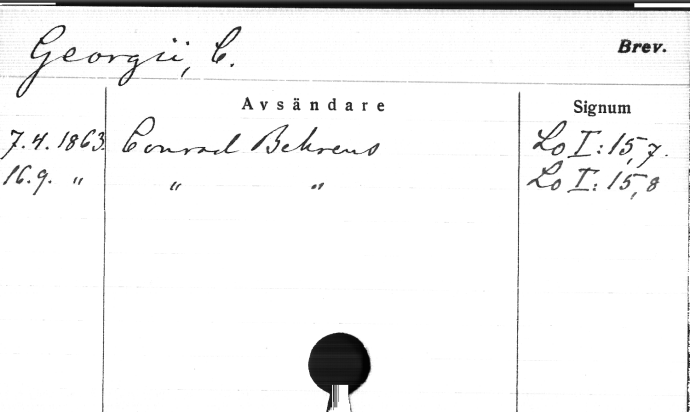 Georgii, C.
Brev.
Avsändare Signum
7.4.1863. Conrad Behrens Lo I: 15,7.
16.9. " " " Lo I: 15,8